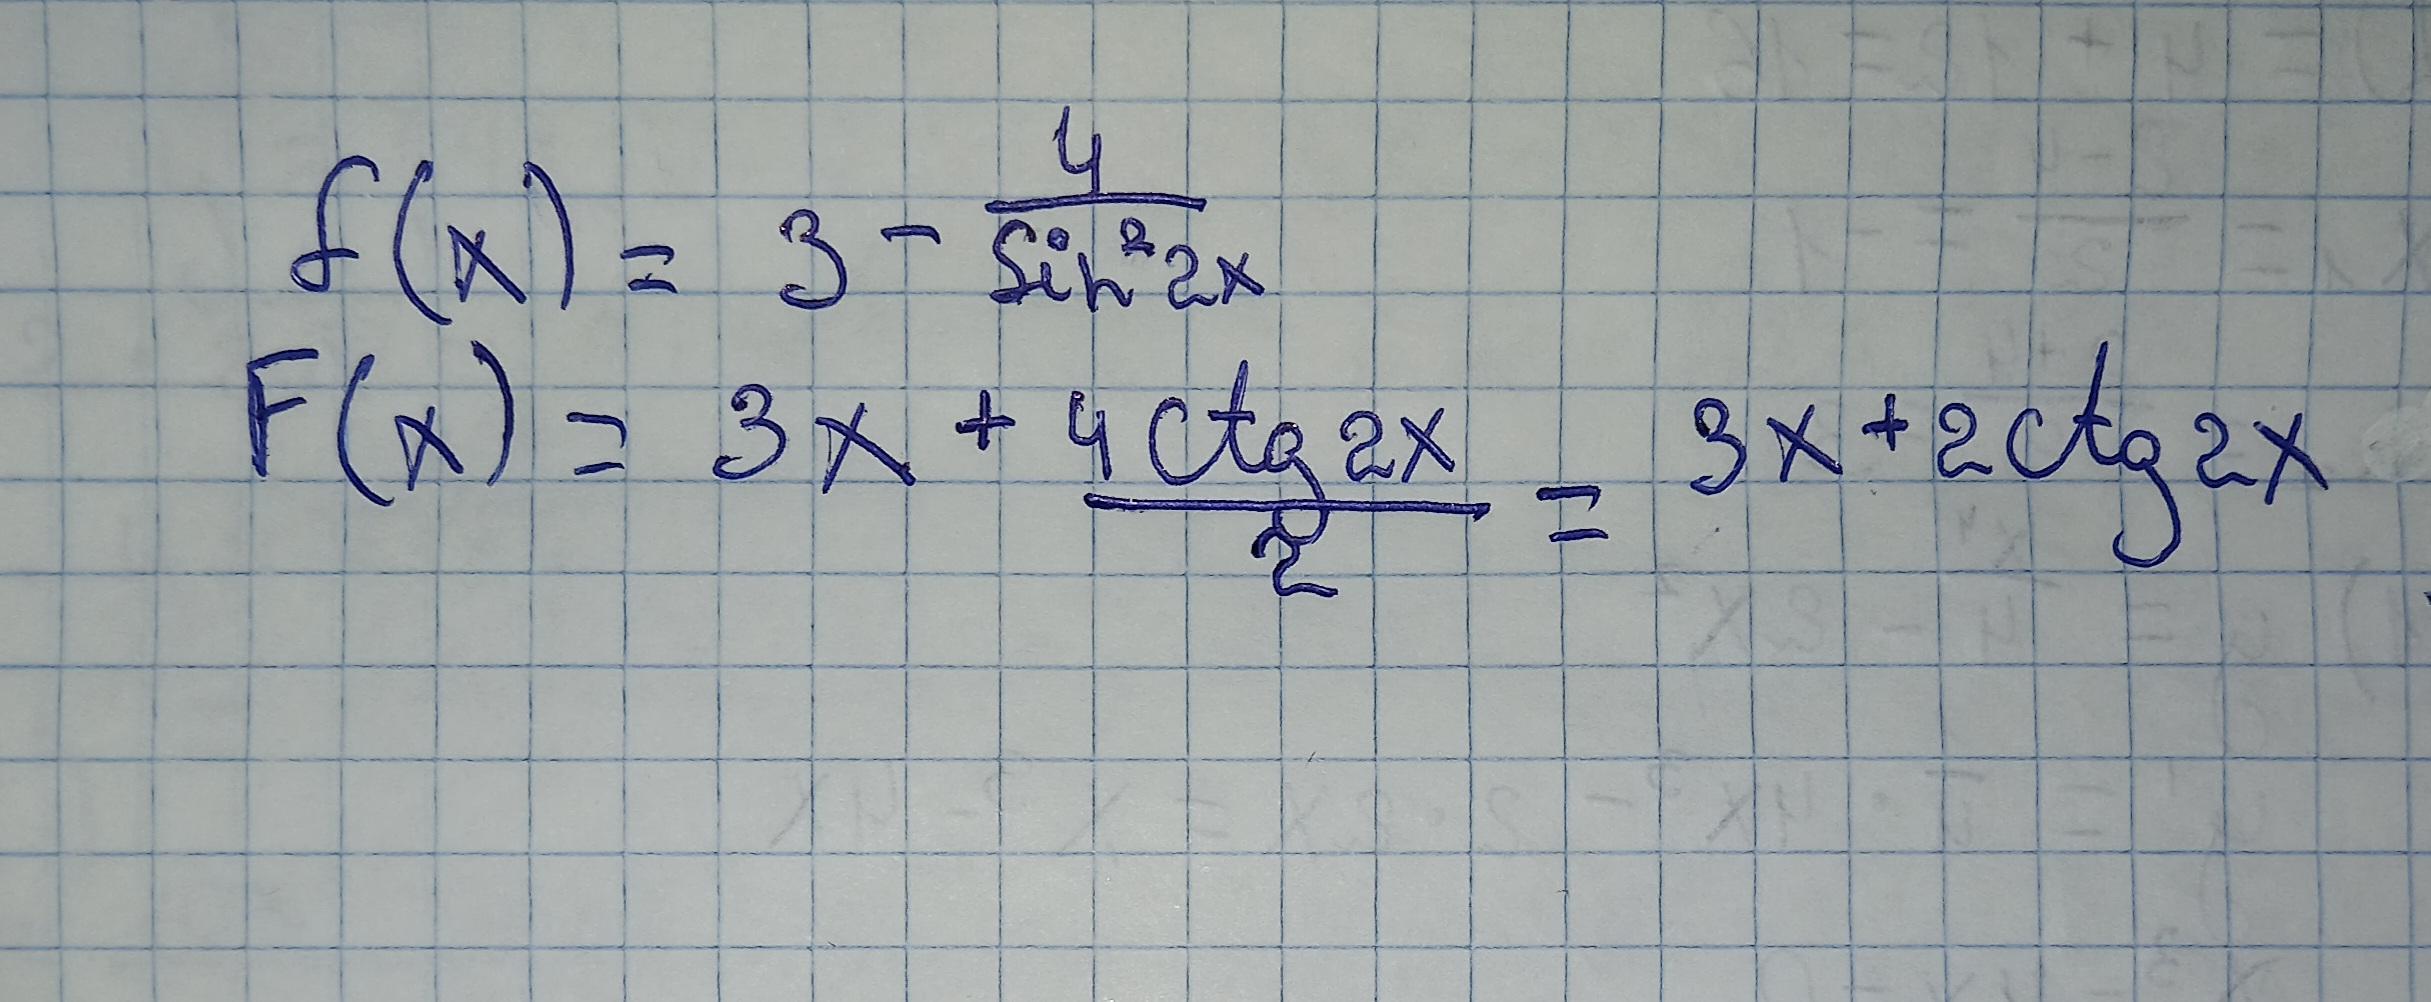 f(x) = 3 - 4/sin²2x
F(x) = 3x + 4ctg2x/2 = 3x+2ctg2x